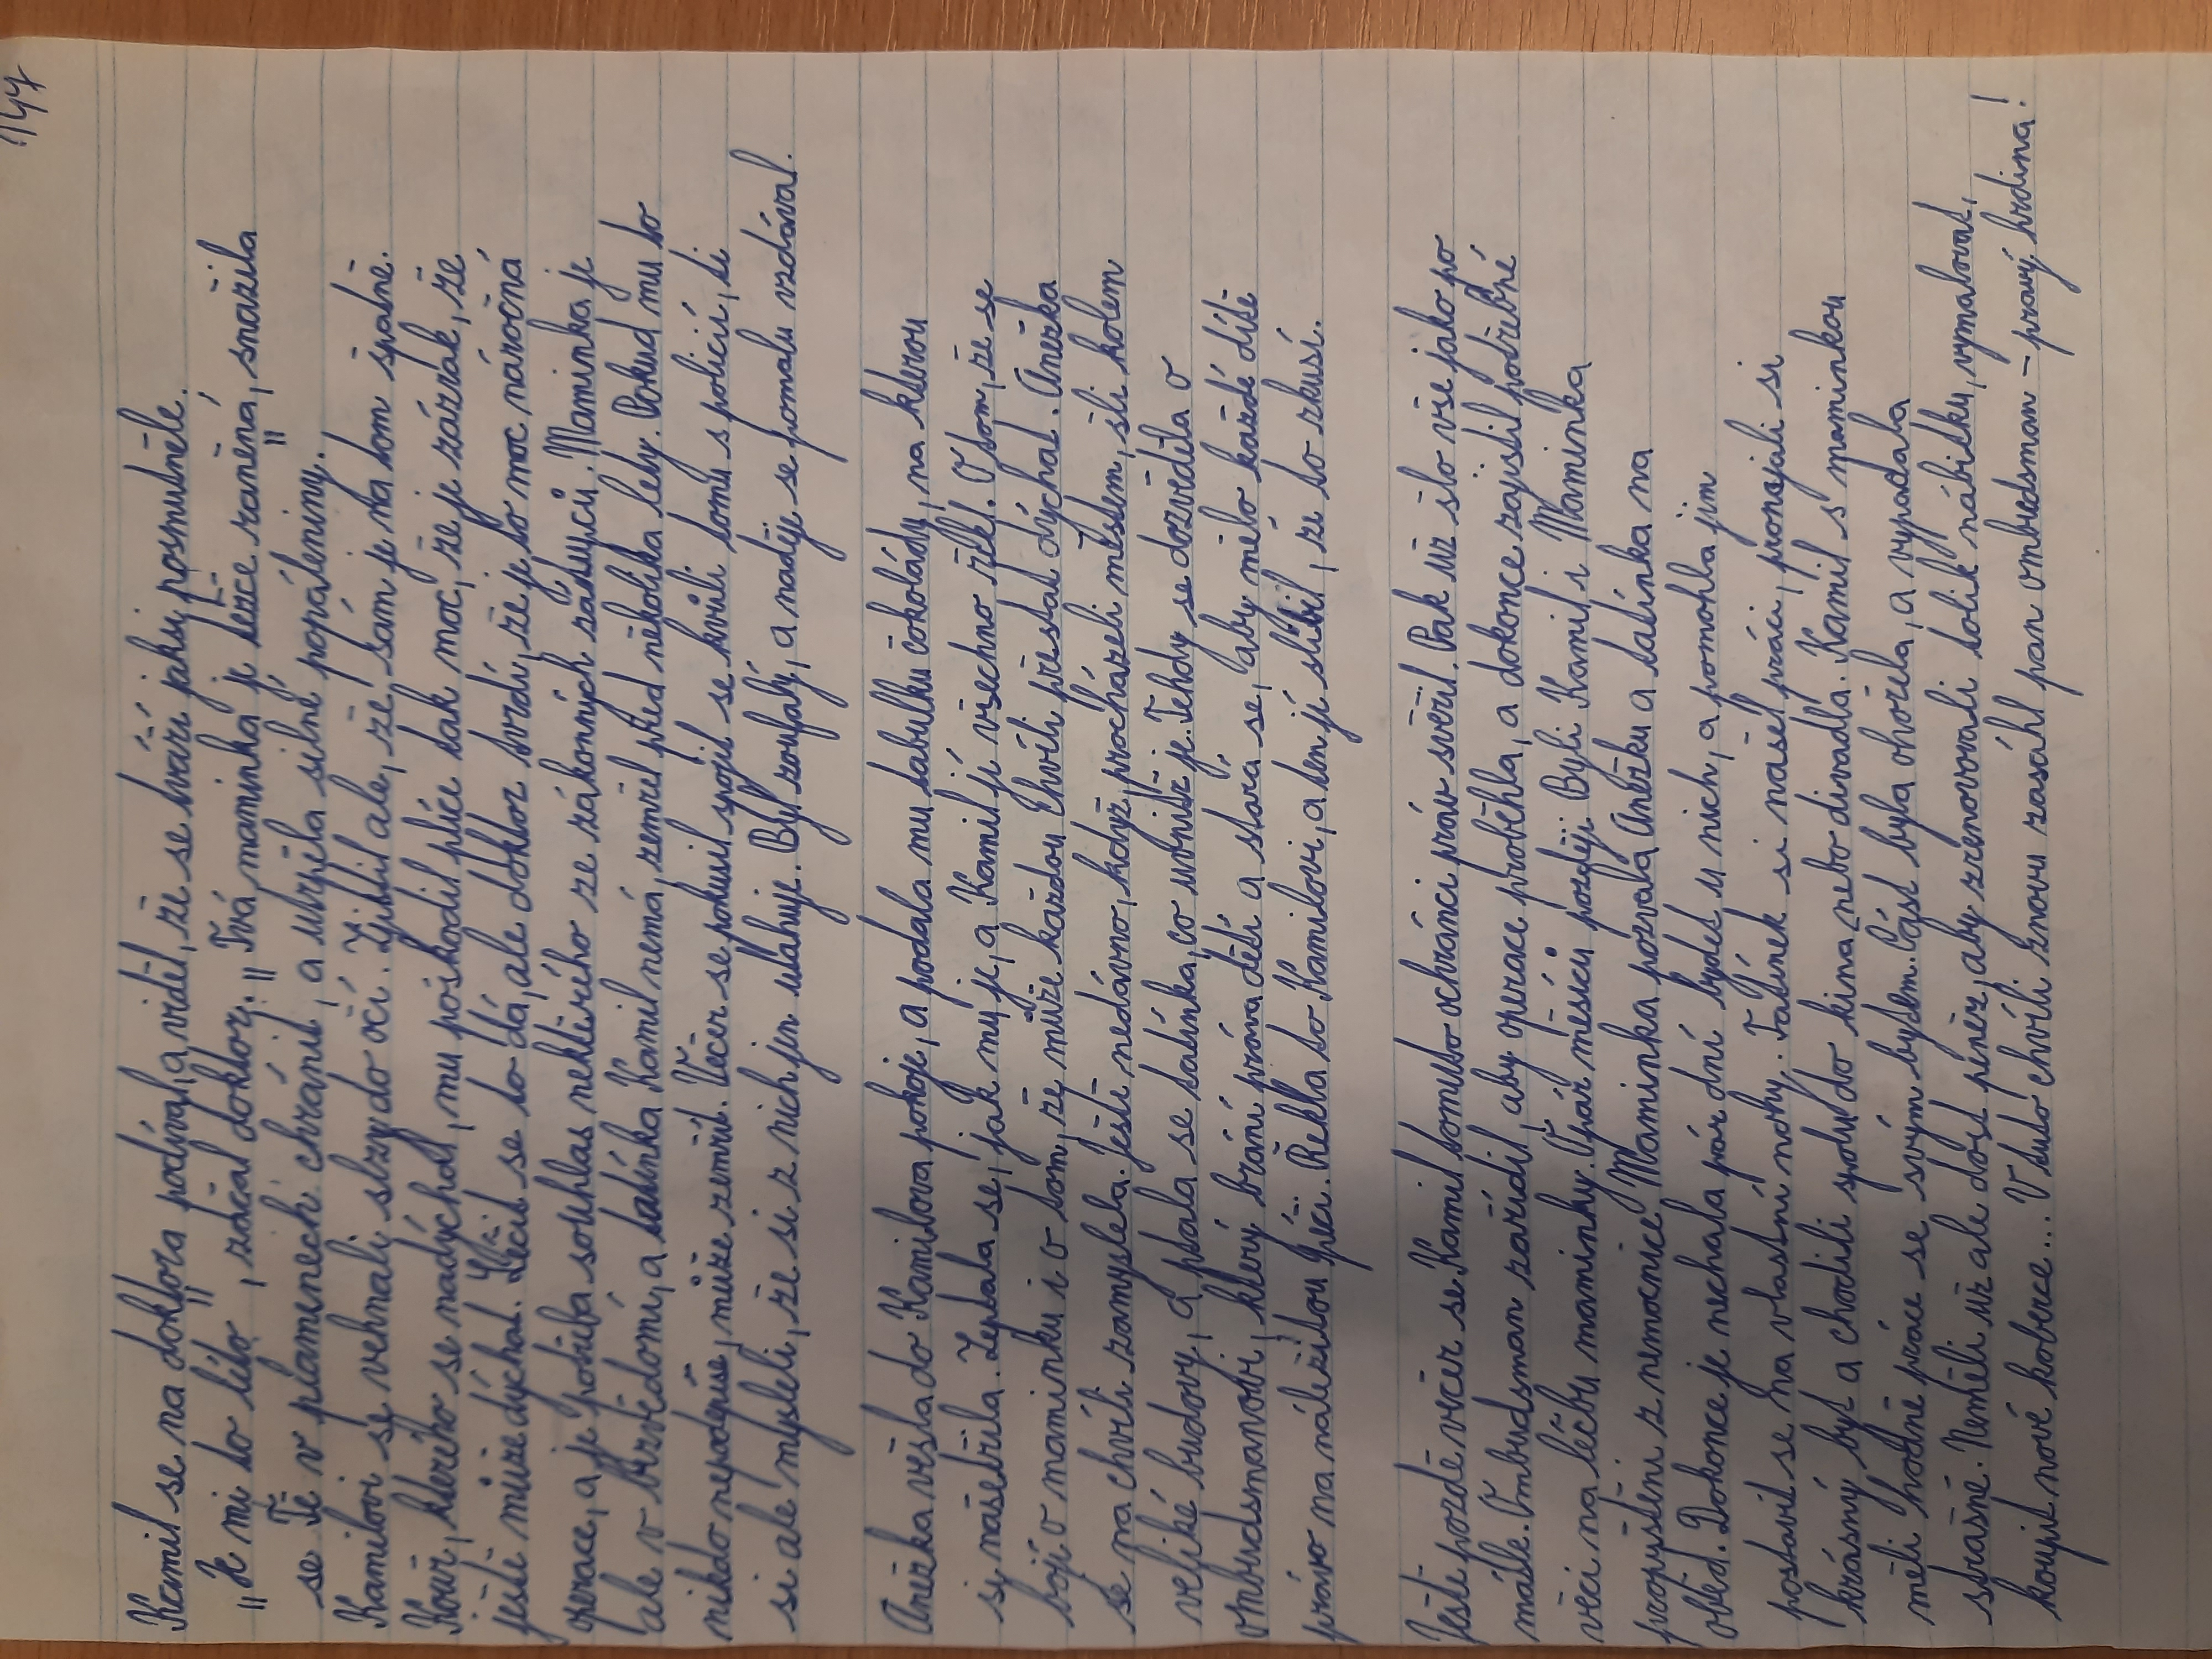 147
Kamil se na doktora podíval, a viděl, že se tváří jaksi posmutněle.
„Je mi to líto", začal doktor. „Tvá maminka je těžce raněná, snažila
se Tě v plamenech chránit, a utrpěla silné popáleniny."
Kamilovi se vehnali slzy do očí. Zjistil ale, že sám je na tom špatně.
Kouř, kterého se nadýchal, mu poškodil plíce tak moc, že je zázrak, že
ještě může dýchat. Léčit se to dá, ale doktor tvrdí, že je to moc náročná
operace, a je potřeba souhlas některého ze zákonných zástupců. Maminka je
ale v bezvědomí, a tatínka Kamil nemá, zemřel před několika lety. Pokud mu to
nikdo nepodepíše, může zemřít. Večer se pokusil spojit se kvůli tomu s policií, ti
si ale mysleli, že si z nich jen utahuje. Byl zoufalý, a naděje se pomalu vzdával.
Anežka vešla do Kamilova pokoje, a podala mu tabulku čokolády, na kterou
si našetřila. Zeptala se, jak mu je, a Kamil jí všechno řekl. O tom, že se
bojí o maminku i o tom, že může každou chvíli přestat dýchat. Anežka
se na chvíli zamyslela. Ještě nedávno, když procházeli městem, šli kolem
veliké budovy, a ptala se tatínka, co uvnitř je. Tehdy se dozvěděla o
ombudsmanovi, který brání práva dětí a stará se, aby mělo každé dítě
právo na náležitou péči. Řekla to Kamilovi, a ten jí slíbil, že to zkusí.
Ještě pozdě večer se Kamil tomuto ochránci práv svěřil. Pak už šlo vše jako po
másle. Ombudsman zařídil, aby operace proběhla, a dokonce zajistil potřebné
věci na léčbu maminky. O pár měsíců později Byli Kamil i Maminka
propuštěni z nemocnice. Maminka pozvala Anežku a tatínka na
oběd. Dokonce je nechala pár dní bydlet u nich, a pomohla jim
postavit se na vlastní nohy. Tatínek si našel práci, pronajali si
krásný byt a chodili spolu do kina nebo divadla. Kamil s maminkou
měli hodně práce se svým bytem. Část byla ohořelá, a vypadala
strašně. Neměli už ale dost peněz, aby zrenovovali tolik nábitku, vymalovat,
koupit nové koberce... V tuto chvíli znovu zasáhl pan ombudsman – pravý hrdina!